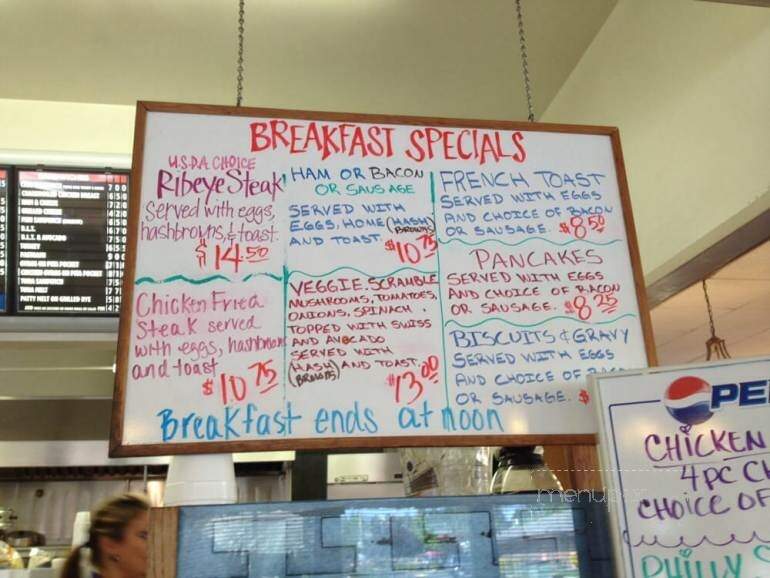 BREAKFAST SPECIALS
U.S.D.A CHOICE
Ribeye Steak
Served with eggs,
hashbrowns, & toast.
$14.50
HAM OR BACON
OR SAUSAGE
SERVED WITH
EGGS, HOME (HASH BROWNS)
AND TOAST. $10.75
FRENCH TOAST
SERVED WITH EGGS
AND CHOICE OF BACON
OR SAUSAGE. $8.50
Chicken Fried
Steak served
with eggs, hashbrowns
and toast
$10.75
VEGGIE SCRAMBLE
MUSHROOMS, TOMATOES,
ONIONS, SPINACH,
TOPPED WITH SWISS
AND AVOCADO
SERVED WITH
(HASH BROWNS) AND TOAST.
$13.00
PANCAKES
SERVED WITH EGGS
AND CHOICE OF BACON
OR SAUSAGE. $8.25
BISCUITS & GRAVY
SERVED WITH EGGS
AND CHOICE OF
OR SAUSAGE. $
Breakfast ends at noon
PE
CHICKEN
4 PC CH
CHOICE OF
PHILLY S
menupix